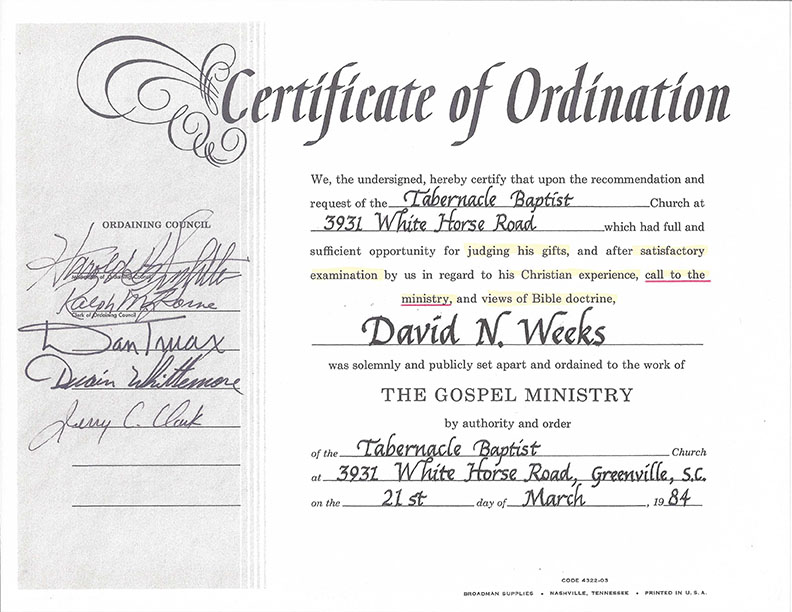 Certificate of Ordination
We, the undersigned, hereby certify that upon the recommendation and
request of the Tabernacle Baptist Church at
3931 White Horse Road which had full and
sufficient opportunity for judging his gifts, and after satisfactory
examination by us in regard to his Christian experience, call to the
ministry, and views of Bible doctrine,
David N. Weeks
was solemnly and publicly set apart and ordained to the work of
THE GOSPEL MINISTRY
by authority and order
of the Tabernacle Baptist Church
at 3931 White Horse Road, Greenville, S.C.
on the 21st day of March, 1984
ORDAINING COUNCIL
Harold
Ralph
Clerk of Ordaining Council
Dan Truax
Whittemore
Jerry C. Clark
CODE 4322-03
BROADMAN SUPPLIES • NASHVILLE, TENNESSEE • PRINTED IN U. S. A.